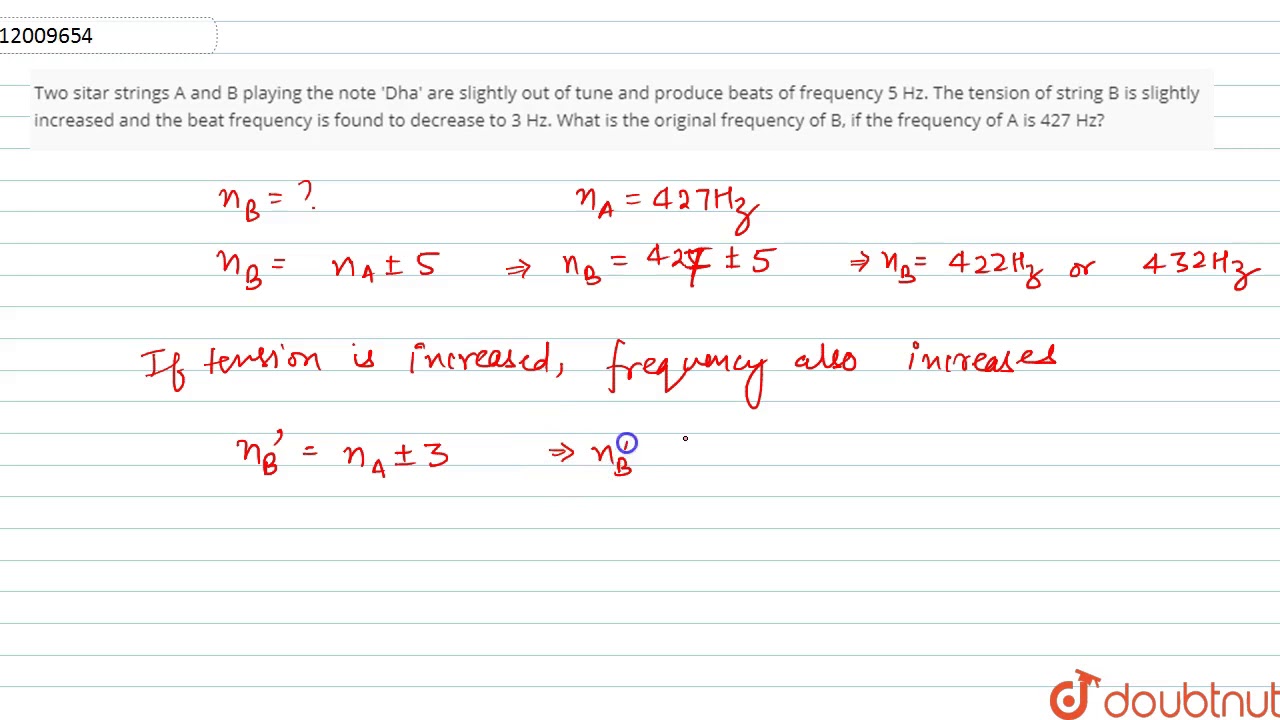 12009654
Two sitar strings A and B playing the note 'Dha' are slightly out of tune and produce beats of frequency 5 Hz. The tension of string B is slightly
increased and the beat frequency is found to decrease to 3 Hz. What is the original frequency of B, if the frequency of A is 427 Hz?
n_B = ? n_A = 427Hz
n_B = n_A ± 5 ⇒ n_B = 427 ± 5 ⇒ n_B = 422Hz or 432Hz
If tension is increased, frequency also increases
n_B' = n_A ± 3 ⇒ n_B'
doubtnut